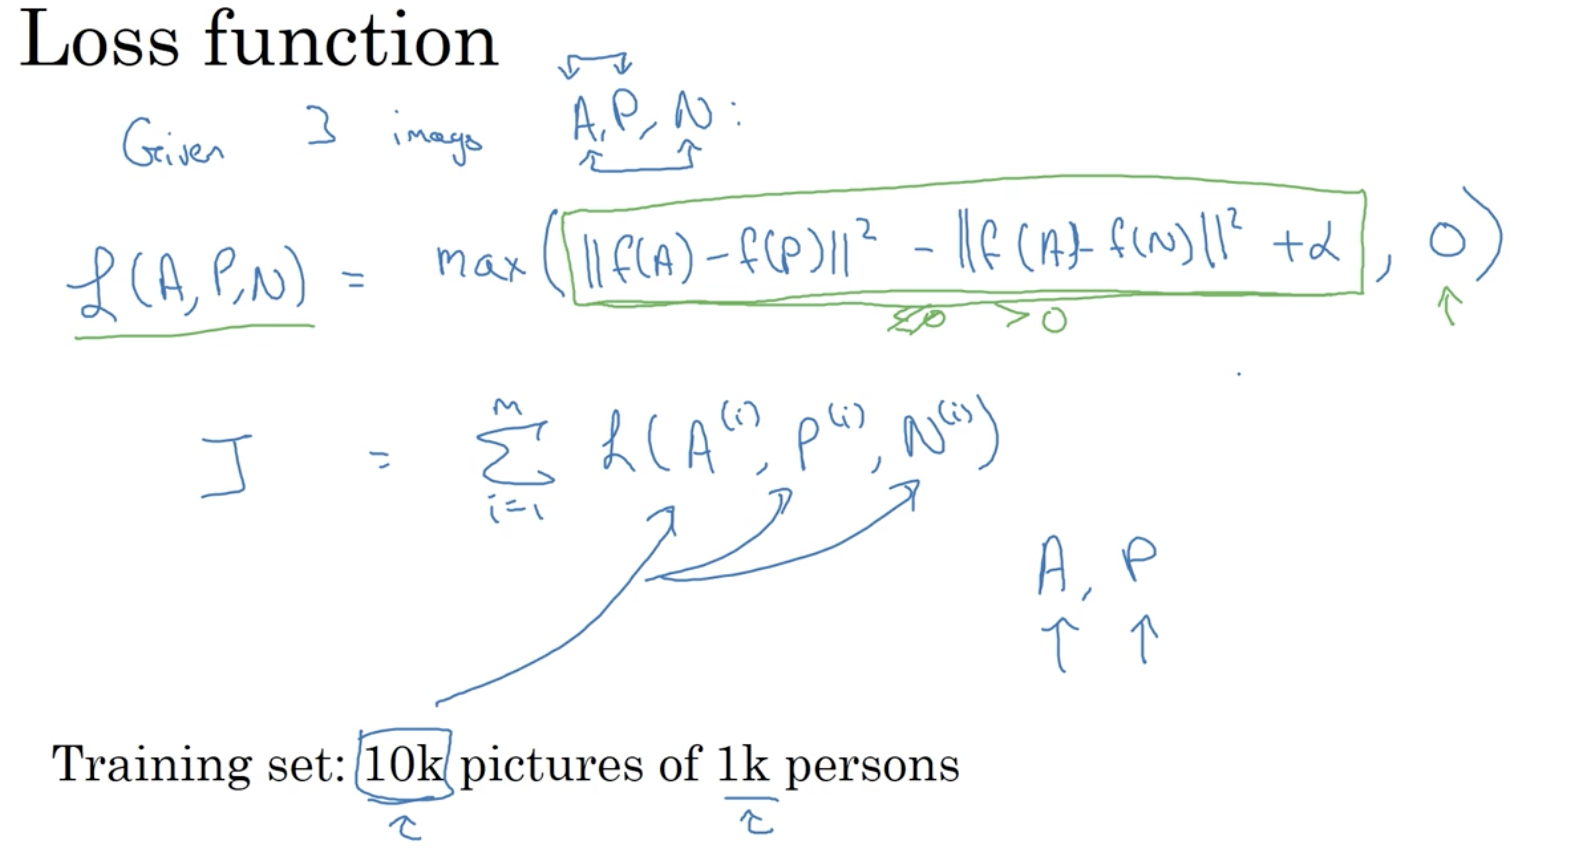 Loss function
Given 3 images A, P, N :
L(A, P, N) = max(||f(A) - f(P)||² - ||f(A) - f(N)||² + α, 0)
≤0 >0
J = Σ_{i=1}^{m} L(A⁽ⁱ⁾, P⁽ⁱ⁾, N⁽ⁱ⁾)
A, P
Training set: 10k pictures of 1k persons